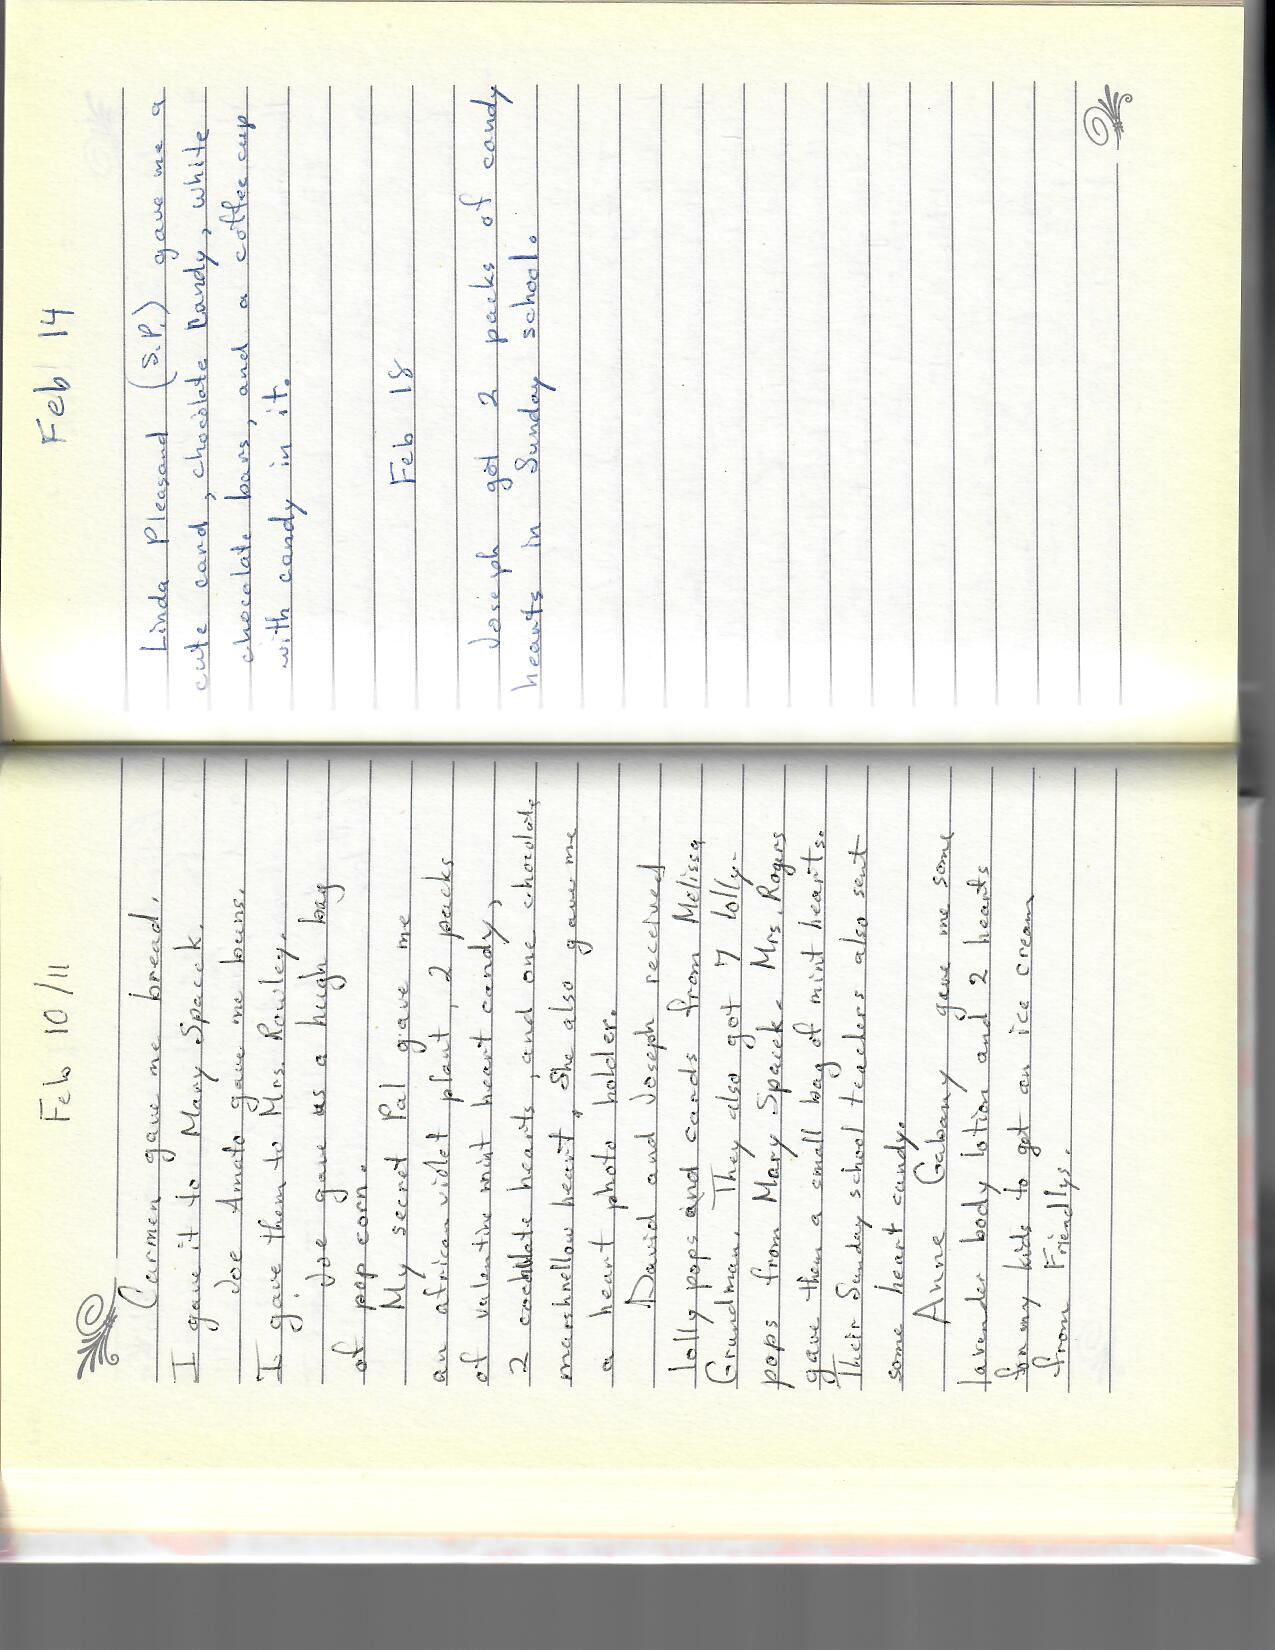 Feb 10/11
Carmen gave me bread.
I gave it to Mary Spacek.
Joe Amato gave me buns.
I gave them to Mrs. Rowley.
Joe gave us a hugh bag
of pop corn.
My secret Pal gave me
an african violet plant, 2 packs
of valentine mint heart candy,
2 hearts, and one chocolate
marshmellow heart. She also gave me
a heart photo holder.
David and Joseph received
lolly pops and cards from Melissa
Grundman. They also got 7 lolly-
pops from Mary Spacek. Mrs. Rogers
gave them a small bag of mint hearts.
Their Sunday school teachers also sent
some heart candy.
Anne Gabany gave me some
lavender body lotion and 2 hearts
for my kids to get an ice cream
from Friendlys.
Feb 14
Linda Pleasand (S.P.) gave me a
cute card, chocolate candy, white
chocolate bars, and a coffee cup
with candy in it.
Feb 18
Joseph got 2 packs of candy
hearts in Sunday school.